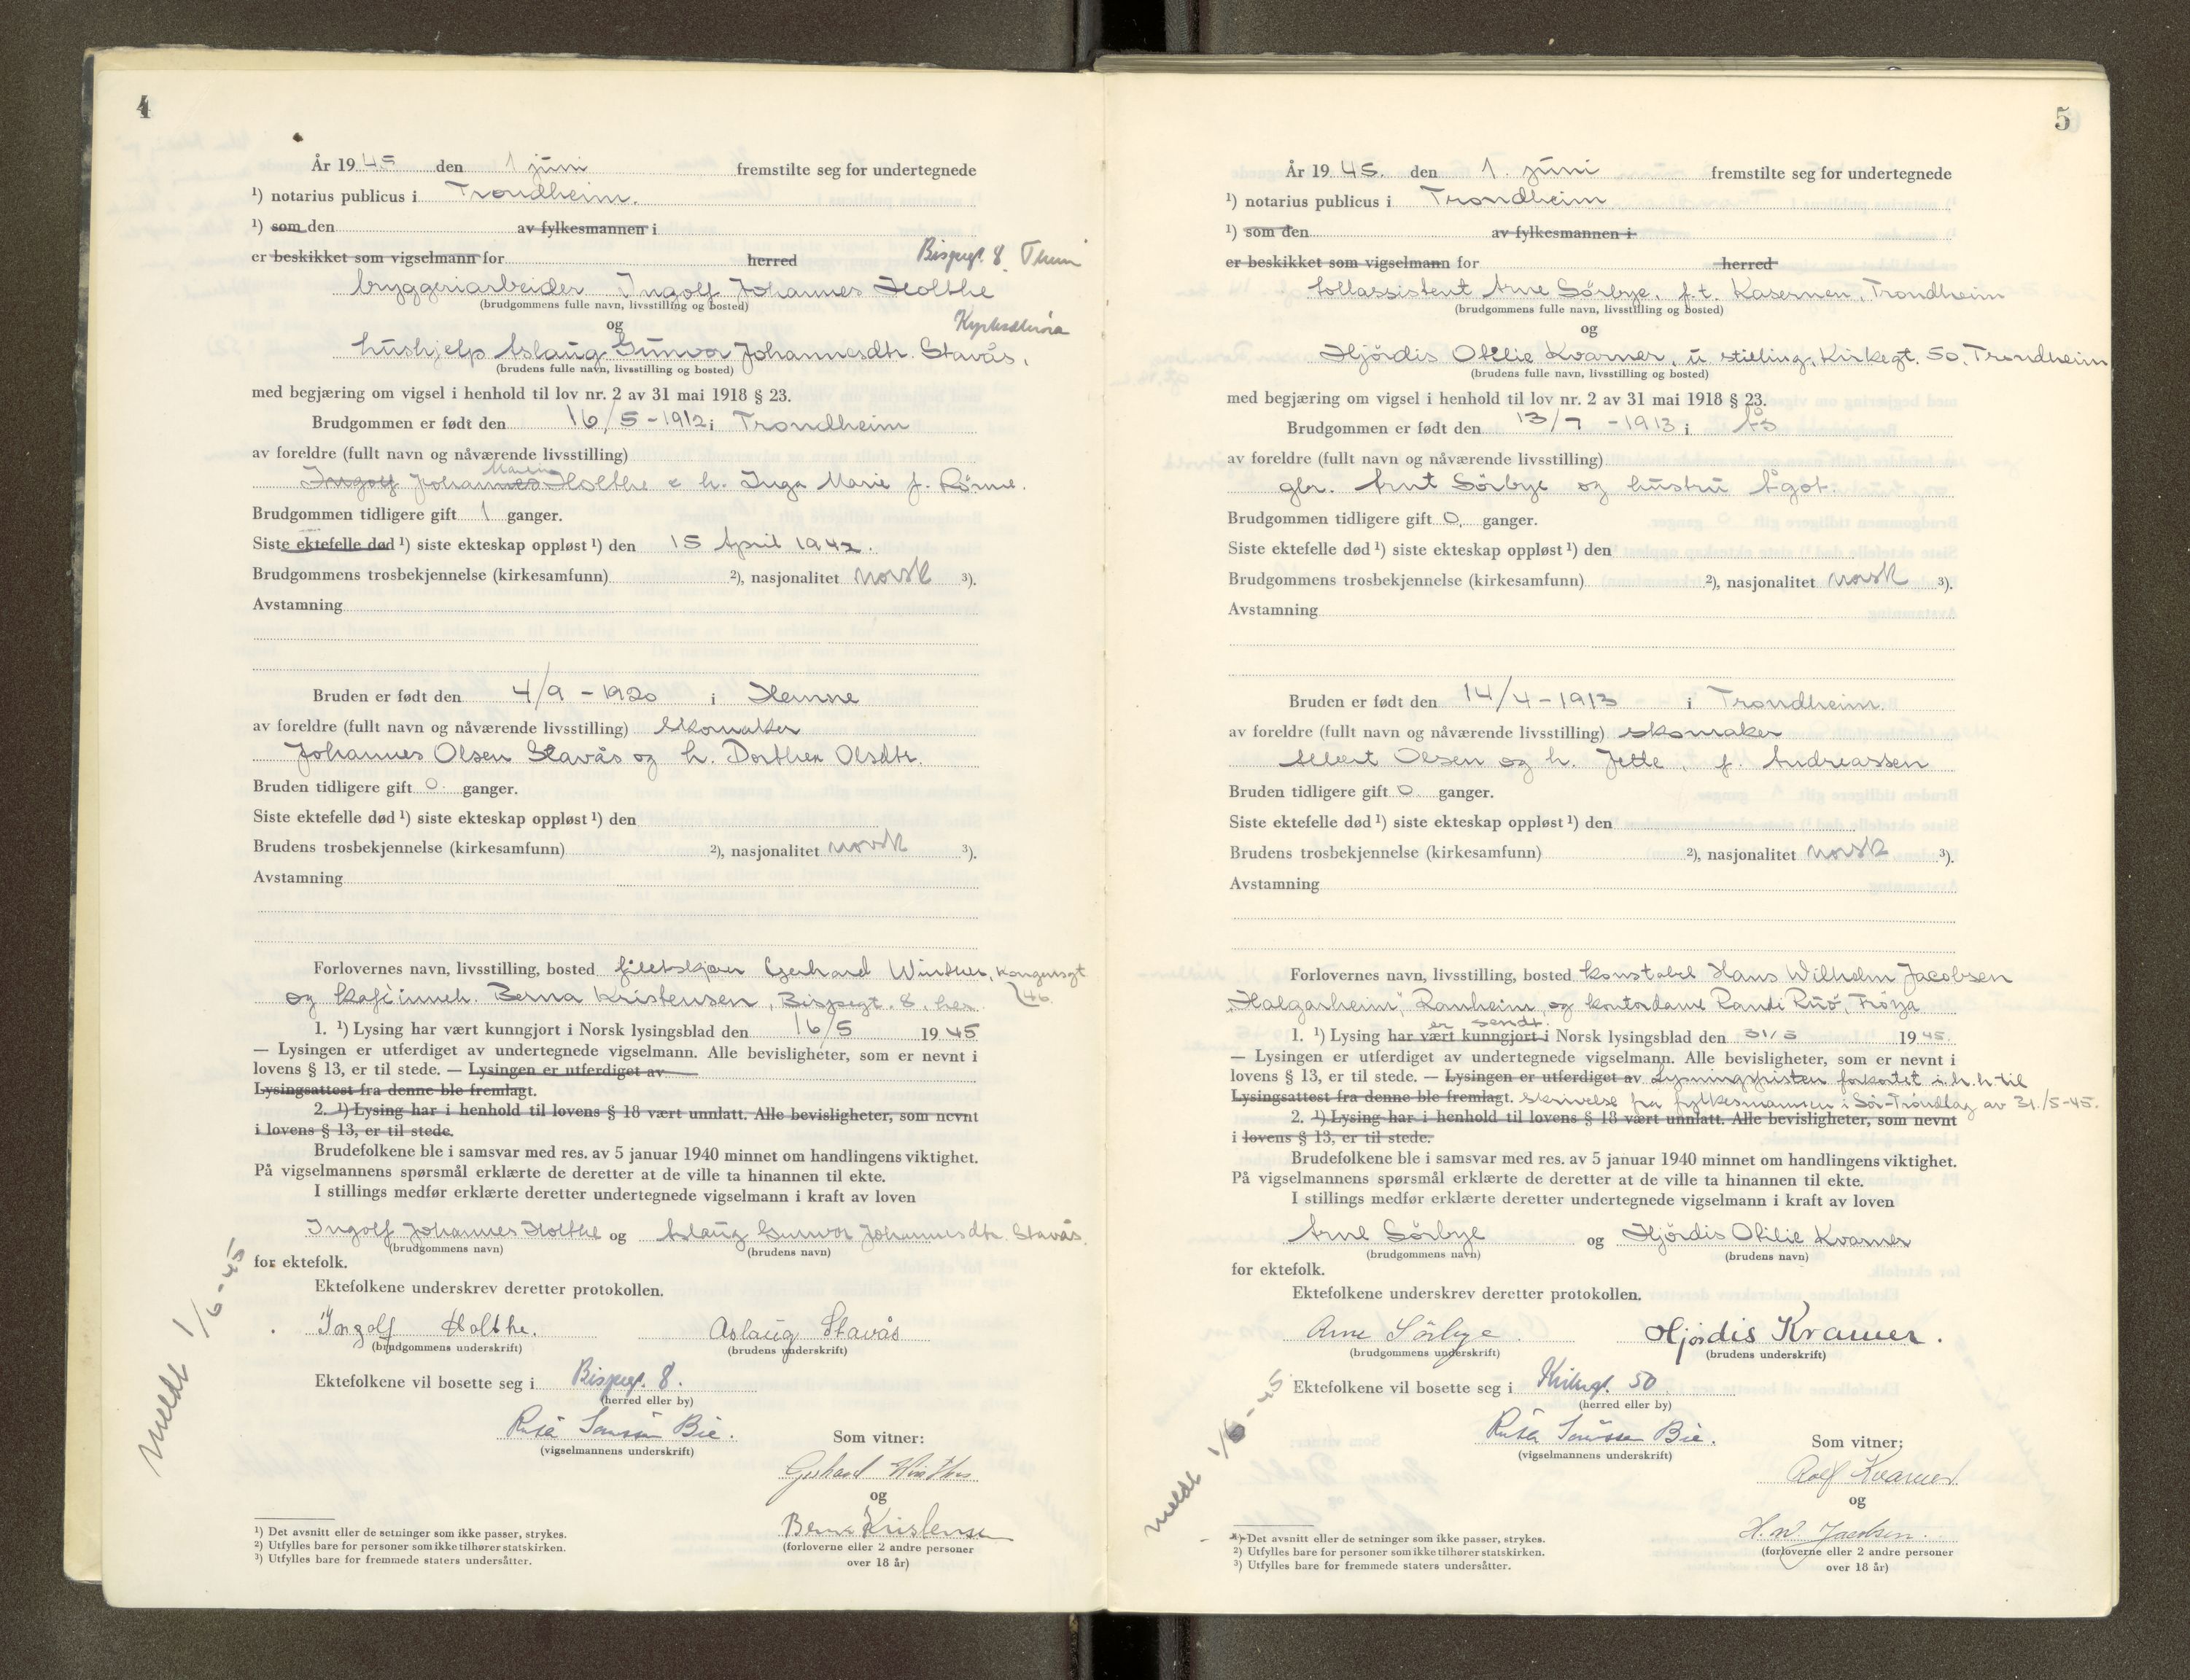 4
År 1945 den 1 juni fremstilte seg for undertegnede
¹) notarius publicus i Trondheim.
¹) som den av fylkesmannen i
er beskikket som vigselmann for herred Bispegt. 8 Thm
bryggeriarbeider Ingolf Johannes Holthe
(brudgommens fulle navn, livsstilling og bosted)
og
Kyrksæterøra
hushjelp Aslaug Gunvor Johannesdtr. Stavås,
(brudens fulle navn, livsstilling og bosted)
med begjæring om vigsel i henhold til lov nr. 2 av 31 mai 1918 § 23.
Brudgommen er født den 16/5 - 1912 i Trondheim
av foreldre (fullt navn og nåværende livsstilling)
Ingolf Johannes Holthe & h. Inga Marie f.
Brudgommen tidligere gift 1 ganger.
Siste ektefelle død ¹) siste ekteskap oppløst ¹) den 15 April 1942.
Brudgommens trosbekjennelse (kirkesamfunn) ²), nasjonalitet norsk ³).
Avstamning
Bruden er født den 4/9 - 1920 i Hemne
av foreldre (fullt navn og nåværende livsstilling) Skomaker
Johannes Olsen Stavås og h. Dorthea Olsdtr.
Bruden tidligere gift 0 ganger.
Siste ektefelle død ¹) siste ekteskap oppløst ¹) den
Brudens trosbekjennelse (kirkesamfunn) ²), nasjonalitet norsk ³).
Avstamning
Forlovernes navn, livsstilling, bosted Gerhard Winther, Kongensgt
46
og kafeinneh. Berna Kristensen, Bispegt. 8. her.
1. ¹) Lysing har vært kunngjort i Norsk lysingsblad den 16/5 1945
— Lysingen er utferdiget av undertegnede vigselmann. Alle bevisligheter, som er nevnt i
lovens § 13, er til stede. — Lysingen er utferdiget av
Lysingsattest fra denne ble fremlagt.
2. ¹) Lysing har i henhold til lovens § 18 vært unnlatt. Alle bevisligheter, som nevnt
i lovens § 13, er til stede.
Brudefolkene ble i samsvar med res. av 5 januar 1940 minnet om handlingens viktighet.
På vigselmannens spørsmål erklærte de deretter at de ville ta hinannen til ekte.
I stillings medfør erklærte deretter undertegnede vigselmann i kraft av loven
Ingolf Johannes Holthe og Aslaug Gunvor Johannesdtr. Stavås
(brudgommens navn) (brudens navn)
for ektefolk.
Ektefolkene underskrev deretter protokollen.
Ingolf Holthe. Aslaug Stavås
(brudgommens underskrift) (brudens underskrift)
Ektefolkene vil bosette seg i Bispegt. 8.
(herred eller by)
Bie.
(vigselmannens underskrift)
Som vitner:
Gerhard Winther
og
Berna Kristensen
(forloverne eller 2 andre personer
over 18 år)
meldt 1/6-45
¹) Det avsnitt eller de setninger som ikke passer, strykes.
²) Utfylles bare for personer som ikke tilhører statskirken.
³) Utfylles bare for fremmede staters undersåtter.
5
År 1945. den 1. juni fremstilte seg for undertegnede
¹) notarius publicus i Trondheim
¹) som den av fylkesmannen i
er beskikket som vigselmann for herred
tollassistent Arne Sörbye, f.t. Kasernen, Trondheim
(brudgommens fulle navn, livsstilling og bosted)
og
Hjördis Otilie Kvarner, u stilling, Kirkegt. 50, Trondheim
(brudens fulle navn, livsstilling og bosted)
med begjæring om vigsel i henhold til lov nr. 2 av 31 mai 1918 § 23.
Brudgommen er født den 13/7 - 1913 i Ås
av foreldre (fullt navn og nåværende livsstilling)
gbr. Arnt Sörbye og hustru Ågot.
Brudgommen tidligere gift 0. ganger.
Siste ektefelle død ¹) siste ekteskap oppløst ¹) den
Brudgommens trosbekjennelse (kirkesamfunn) ²), nasjonalitet norsk ³).
Avstamning
Bruden er født den 14/4 - 1913 i Trondheim.
av foreldre (fullt navn og nåværende livsstilling) skomaker
Albert Olsen og h. Jette, f. Andreassen
Bruden tidligere gift 0 ganger.
Siste ektefelle død ¹) siste ekteskap oppløst ¹) den
Brudens trosbekjennelse (kirkesamfunn) ²), nasjonalitet norsk ³).
Avstamning
Forlovernes navn, livsstilling, bosted konstabel Hans Wilhelm Jacobsen
"Halgarheim", Ranheim, og kontordame Randi Ruö, Fröya
er sendt.
1. ¹) Lysing har vært kunngjort i Norsk lysingsblad den 31/5 1945.
— Lysingen er utferdiget av undertegnede vigselmann. Alle bevisligheter, som er nevnt i
lovens § 13, er til stede. — Lysingen er utferdiget av Lysningsfristen forkortet i h.h. til
Lysingsattest fra denne ble fremlagt. skrivelse fra fylkesmannen i Sör-Tröndlag av 31./5-45.
2. ¹) Lysing har i henhold til lovens § 18 vært unnlatt. Alle bevisligheter, som nevnt
i lovens § 13, er til stede.
Brudefolkene ble i samsvar med res. av 5 januar 1940 minnet om handlingens viktighet.
På vigselmannens spørsmål erklærte de deretter at de ville ta hinannen til ekte.
I stillings medfør erklærte deretter undertegnede vigselmann i kraft av loven
Arne Sörbye og Hjördis Otilie Kvarner
(brudgommens navn) (brudens navn)
for ektefolk.
Ektefolkene underskrev deretter protokollen.
Arne Sörbye. Hjördis Kvarner.
(brudgommens underskrift) (brudens underskrift)
Ektefolkene vil bosette seg i Kirkegt. 50
(herred eller by)
Bie.
(vigselmannens underskrift)
Som vitner:
Rolf Kvarner
og
H. W. Jacobsen.
(forloverne eller 2 andre personer
over 18 år)
meldt 1/6-45
¹) Det avsnitt eller de setninger som ikke passer, strykes.
²) Utfylles bare for personer som ikke tilhører statskirken.
³) Utfylles bare for fremmede staters undersåtter.